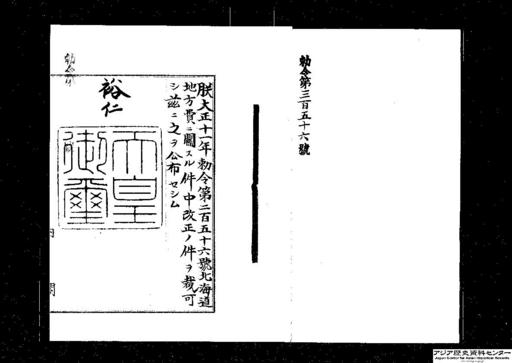 勅令第三百五十六號
朕大正十一年勅令第二百五十六號北海道
地方費ニ關スル件中改正ノ件ヲ裁可
シ茲ニ之ヲ公布セシム
裕仁
天皇
御璽
内閣
アジア歴史資料センター
Japan Center for Asian Historical Records